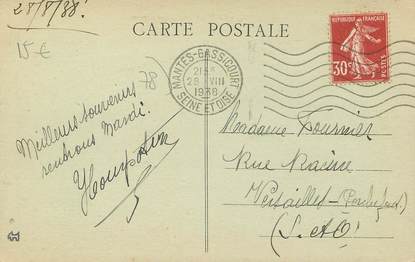 28/8/38!
CARTE POSTALE
15 €
78
MANTES-GASSICOURT
21H
28 VIII
1938
SEINE ET OISE
REPUBLIQUE FRANÇAISE
30c
POSTES
Meilleurs souvenirs
rentrons Mardi.
Madame Fournier
Rue Racine
Versailles
(S.&O)